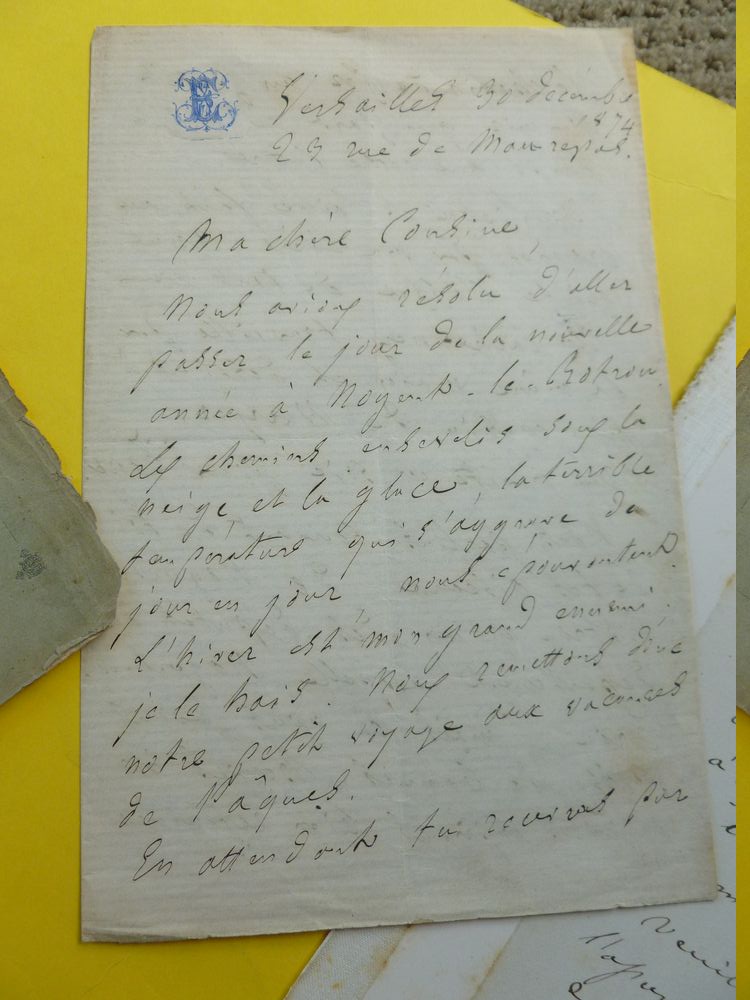 Versailles 30 décembre
1874
23 rue de Maurepas.
Ma chère Cousine,
Nous avions résolu d'aller
passer le jour de la nouvelle
année à Nogent-le-Rotrou.
Les chemins ensevelis sous la
neige et la glace, la terrible
température qui s'aggrave de
jour en jour, nous épouvantent.
L'hiver est mon grand ennemi.
je le hais. Nous remettons donc
notre petit voyage aux vacances
de Pâques.
En attendant tu recevras par